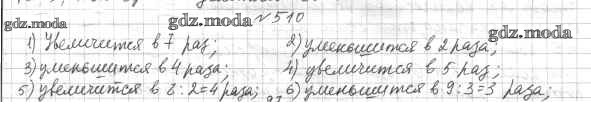 gdz.moda
gdz.moda №510
gdz.moda
1) Увеличится в 7 раз; 2) уменьшится в 2 раза;
3) уменьшится в 4 раза; 4) увеличится в 5 раз;
5) увеличится в 8:2=4 раза; 6) уменьшится в 9:3=3 раза;